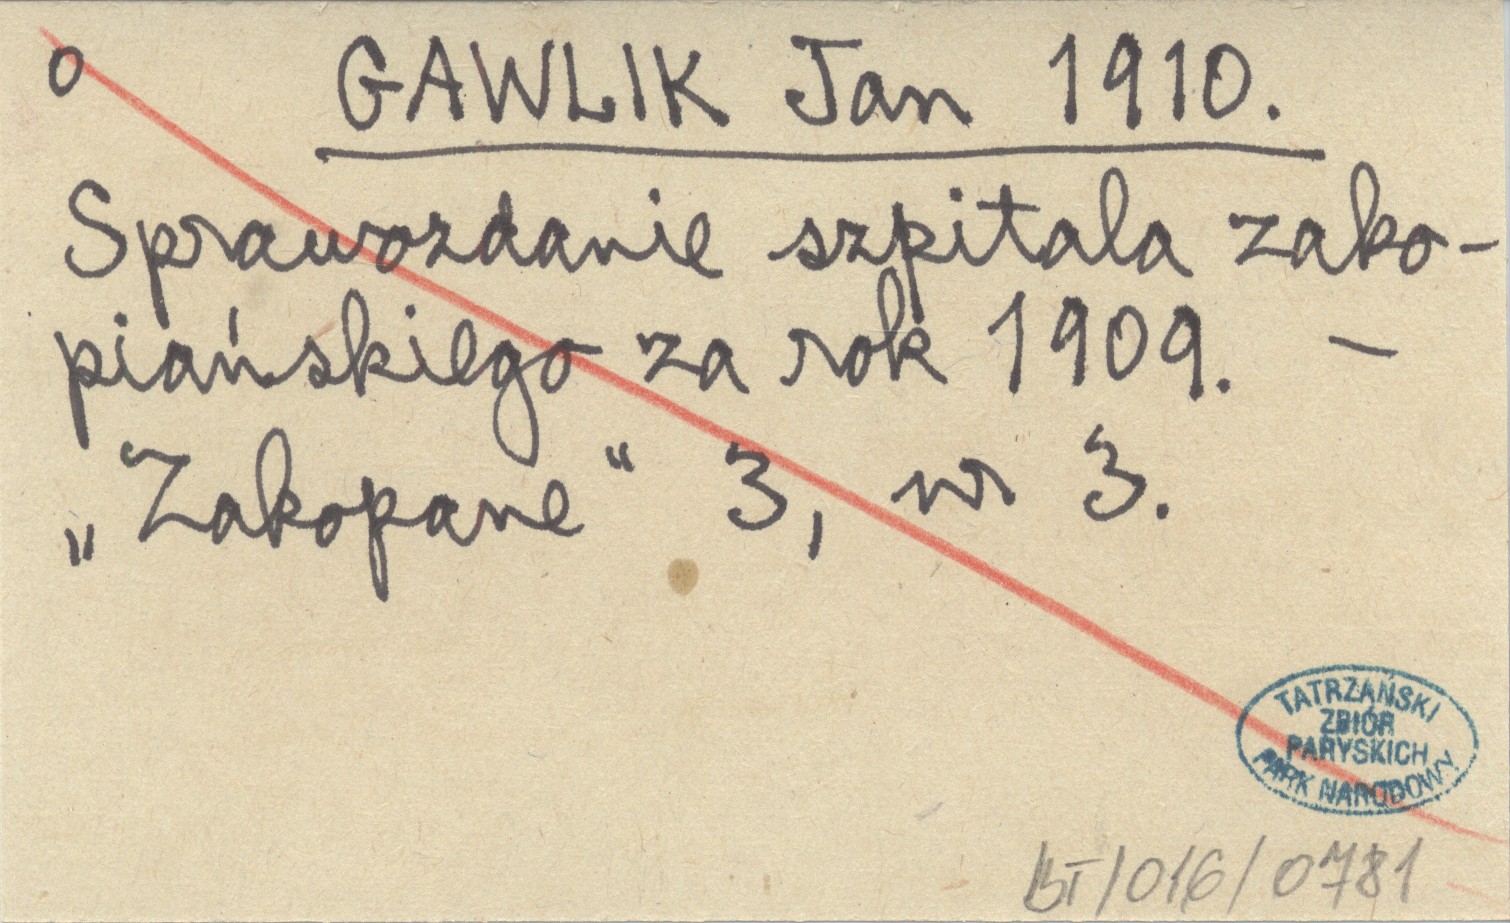 o GAWLIK Jan 1910.
Sprawozdanie szpitala zako-
piańskiego za rok 1909. –
„Zakopane“ 3, nr 3.
TATRZAŃSKI
ZBIÓR
PARYSKICH
PARK NARODOWY
BT/016/0781